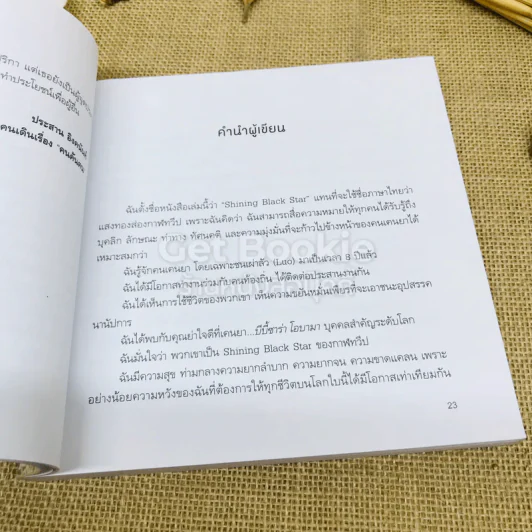 ริกา แต่เธอยังเป็น
ทำประโยชน์เพื่อผู้อื่น
ประสาน
คนเดินเรื่อง "คนค้นฅน
คำนำผู้เขียน
ฉันตั้งชื่อหนังสือเล่มนี้ว่า "Shining Black Star" แทนที่จะใช้ชื่อภาษาไทยว่า
แสงทองส่องกาฬทวีป เพราะฉันคิดว่า ฉันสามารถสื่อความหมายให้ทุกคนได้รับรู้ถึง
บุคลิก ลักษณะ ท่าทาง ทัศนคติ และความมุ่งมั่นที่จะก้าวไปข้างหน้าของคนเคนยาได้
เหมาะสมกว่า
ฉันรู้จักคนเคนยา โดยเฉพาะชนเผ่าลัว (Luo) มาเป็นเวลา 8 ปีแล้ว
ฉันได้มีโอกาสทำงานร่วมกับคนท้องถิ่น ได้ติดต่อประสานงานกัน
ฉันได้เห็นการใช้ชีวิตของพวกเขา เห็นความขยันหมั่นเพียรที่จะเอาชนะอุปสรรค
นานัปการ
ฉันได้พบกับคุณย่าใจดีที่เคนยา...บีบี้ซาร่า โอบามา บุคคลสำคัญระดับโลก
ฉันมั่นใจว่า พวกเขาเป็น Shining Black Star ของกาฬทวีป
ฉันมีความสุข ท่ามกลางความยากลำบาก ความยากจน ความขาดแคลน เพราะ
อย่างน้อยความหวังของฉันที่ต้องการให้ทุกชีวิตบนโลกใบนี้ได้มีโอกาสเท่าเทียมกัน
23
Get Bookie